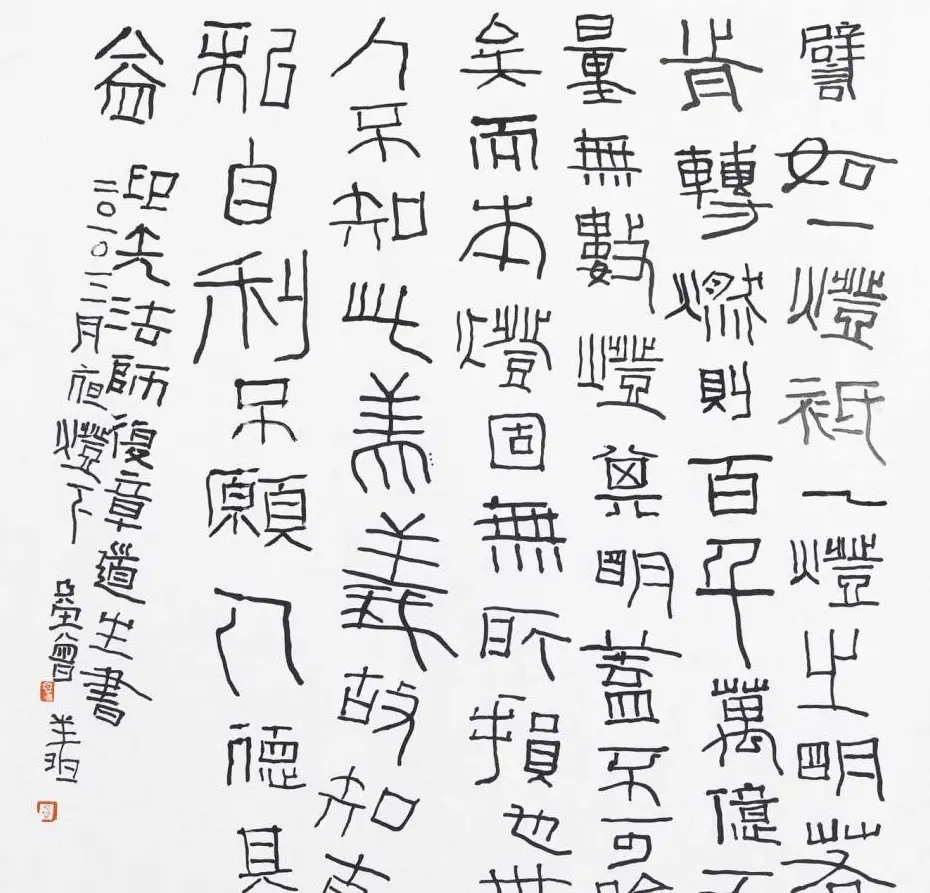 譬如一燈祇一燈之明若
肯轉燃則百千萬億
量無數燈其明蓋不可喻
矣而本燈固無所損也世
人不知此義故知
私自利不願人德其
益
印光法師復章道生書
二〇一〇 月夜燈下